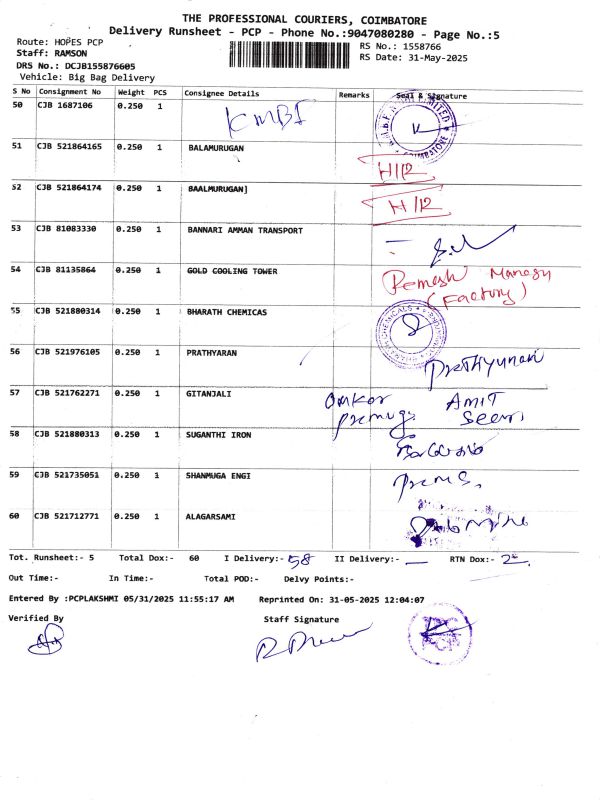 THE PROFESSIONAL COURIERS, COIMBATORE
Delivery Runsheet - PCP - Phone No.:9047080280 - Page No.:5
Route: HOPES PCP
RS No.: 1558766
Staff: RAMSON
RS Date: 31-May-2025
DRS No.: DCJB155876605
Vehicle: Big Bag Delivery
S No Consignment No Weight PCS Consignee Details Remarks Seal & Signature
50 CJB 1687106 0.250 1 KMBF
51 CJB 521864165 0.250 1 BALAMURUGAN H/12
52 CJB 521864174 0.250 1 BAALMURUGAN] H/12
53 CJB 81083330 0.250 1 BANNARI AMMAN TRANSPORT
54 CJB 81135864 0.250 1 GOLD COOLING TOWER Remesh
(Factory)
55 CJB 521880314 0.250 1 BHARATH CHEMICAS
56 CJB 521976105 0.250 1 PRATHYARAN
57 CJB 521762271 0.250 1 GITANJALI Omkar AMIT
58 CJB 521880313 0.250 1 SUGANTHI IRON
59 CJB 521735051 0.250 1 SHANMUGA ENGI
60 CJB 521712771 0.250 1 ALAGARSAMI
Tot. Runsheet:- 5 Total Dox:- 60 I Delivery:- 58 II Delivery:- — RTN Dox:- 2
Out Time:- In Time:- Total POD:- Delvy Points:-
Entered By :PCPLAKSHMI 05/31/2025 11:55:17 AM Reprinted On: 31-05-2025 12:04:07
Verified By Staff Signature